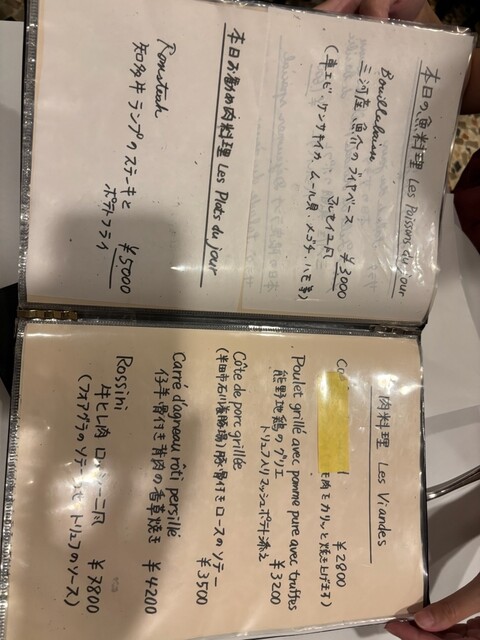 本日の魚料理 Les Poissons du jour
Bouillabaisse
三河産 魚介のブイヤベース ¥3000
マルセイユ風
(車エビ、ケンサキイカ、ムール貝、メゴチ、ハモ等)
本日お勧め肉料理 Les Plats du jour
Romsteak
知多牛ランプのステーキと ¥5000
ポテトフライ
肉料理 Les Viandes
¥2800
Poulet grillé avec pomme pure avec truffes
熊野地鶏のグリエ ¥3200
トリュフ入りマッシュポテト添え
Côte de porc grillée
(半田市石川養豚場)豚骨付きロースのソテー
¥3500
Carré d'agneau rôti persillé
仔羊骨付き背肉の香草焼き ¥4200
Rossini
牛ヒレ肉 ロッシーニ風 ¥7800
(フォアグラのソテー トリュフのソース)